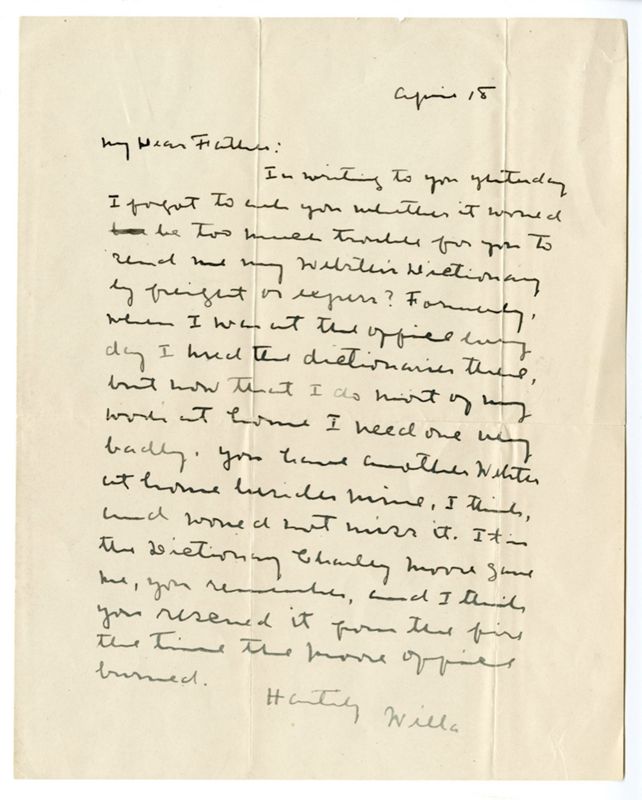 April 18
My Dear Father:
In writing to you yesterday
I forgot to ask you whether it would
be too much trouble for you to
send me my Webster's Dictionary
by freight or express? Formerly,
when I was at the office every
day I used the dictionaries there,
but now that I do most of my
work at home I need one very
badly. You have another Webster
at home besides mine, I think,
and would not miss it. It is
the Dictionary Charley Moore gave
me, you remember, and I think
you rescued it from the fire
the time the Moore office
burned.
Hastily
Willa